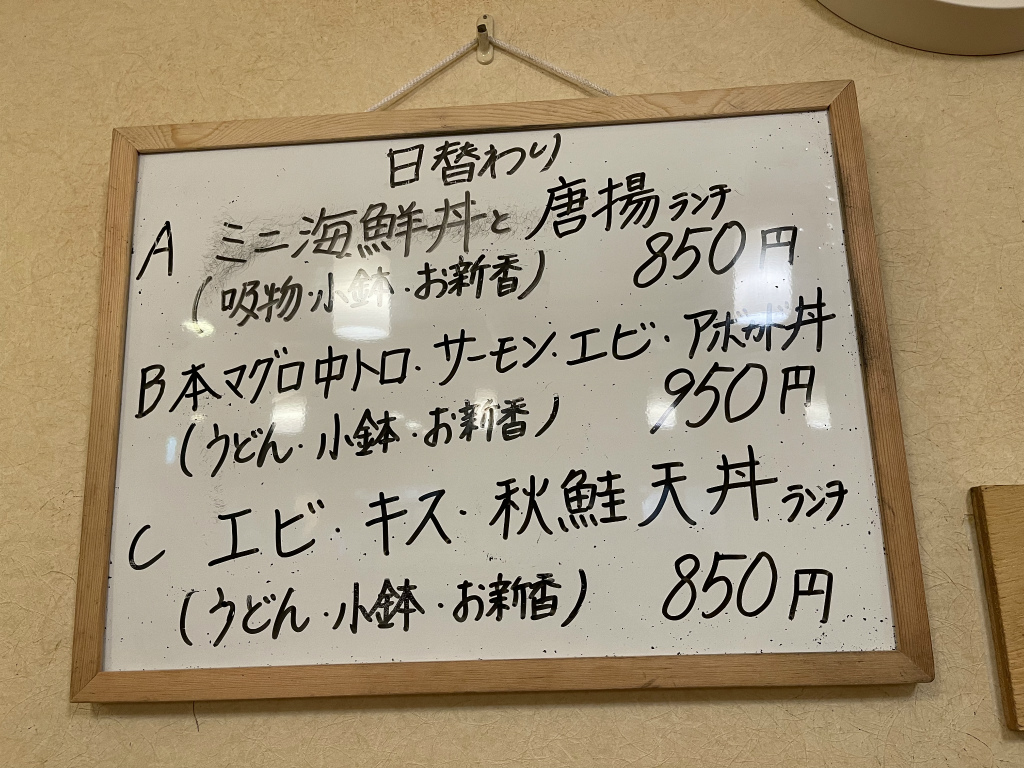 日替わり
A ミニ海鮮丼と唐揚ランチ
(吸物・小鉢・お新香) 850円
B 本マグロ中トロ・サーモン・エビ・アボガド丼
(うどん・小鉢・お新香) 950円
C エビ・キス・秋鮭天丼ランチ
(うどん・小鉢・お新香) 850円